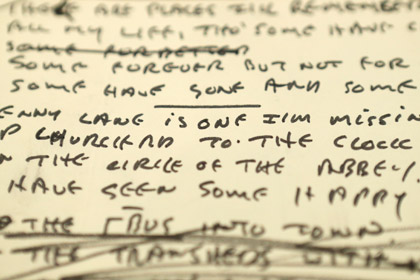 THOSE ARE PLACES I'LL REMEMBER
ALL MY LIFE, THO' SOME HAVE
SOME FOREVER
SOME FOREVER BUT NOT FOR
SOME HAVE GONE AND SOME
ENNY LANE IS ONE I'M MISSIN
P CHURCH AND TO THE CLOCK
N THE CIRCLE OF THE ABBEY.
HAVE SEEN SOME HAPPY
THE BUS INTO TOWN
THE TRAMSHEDS WITH